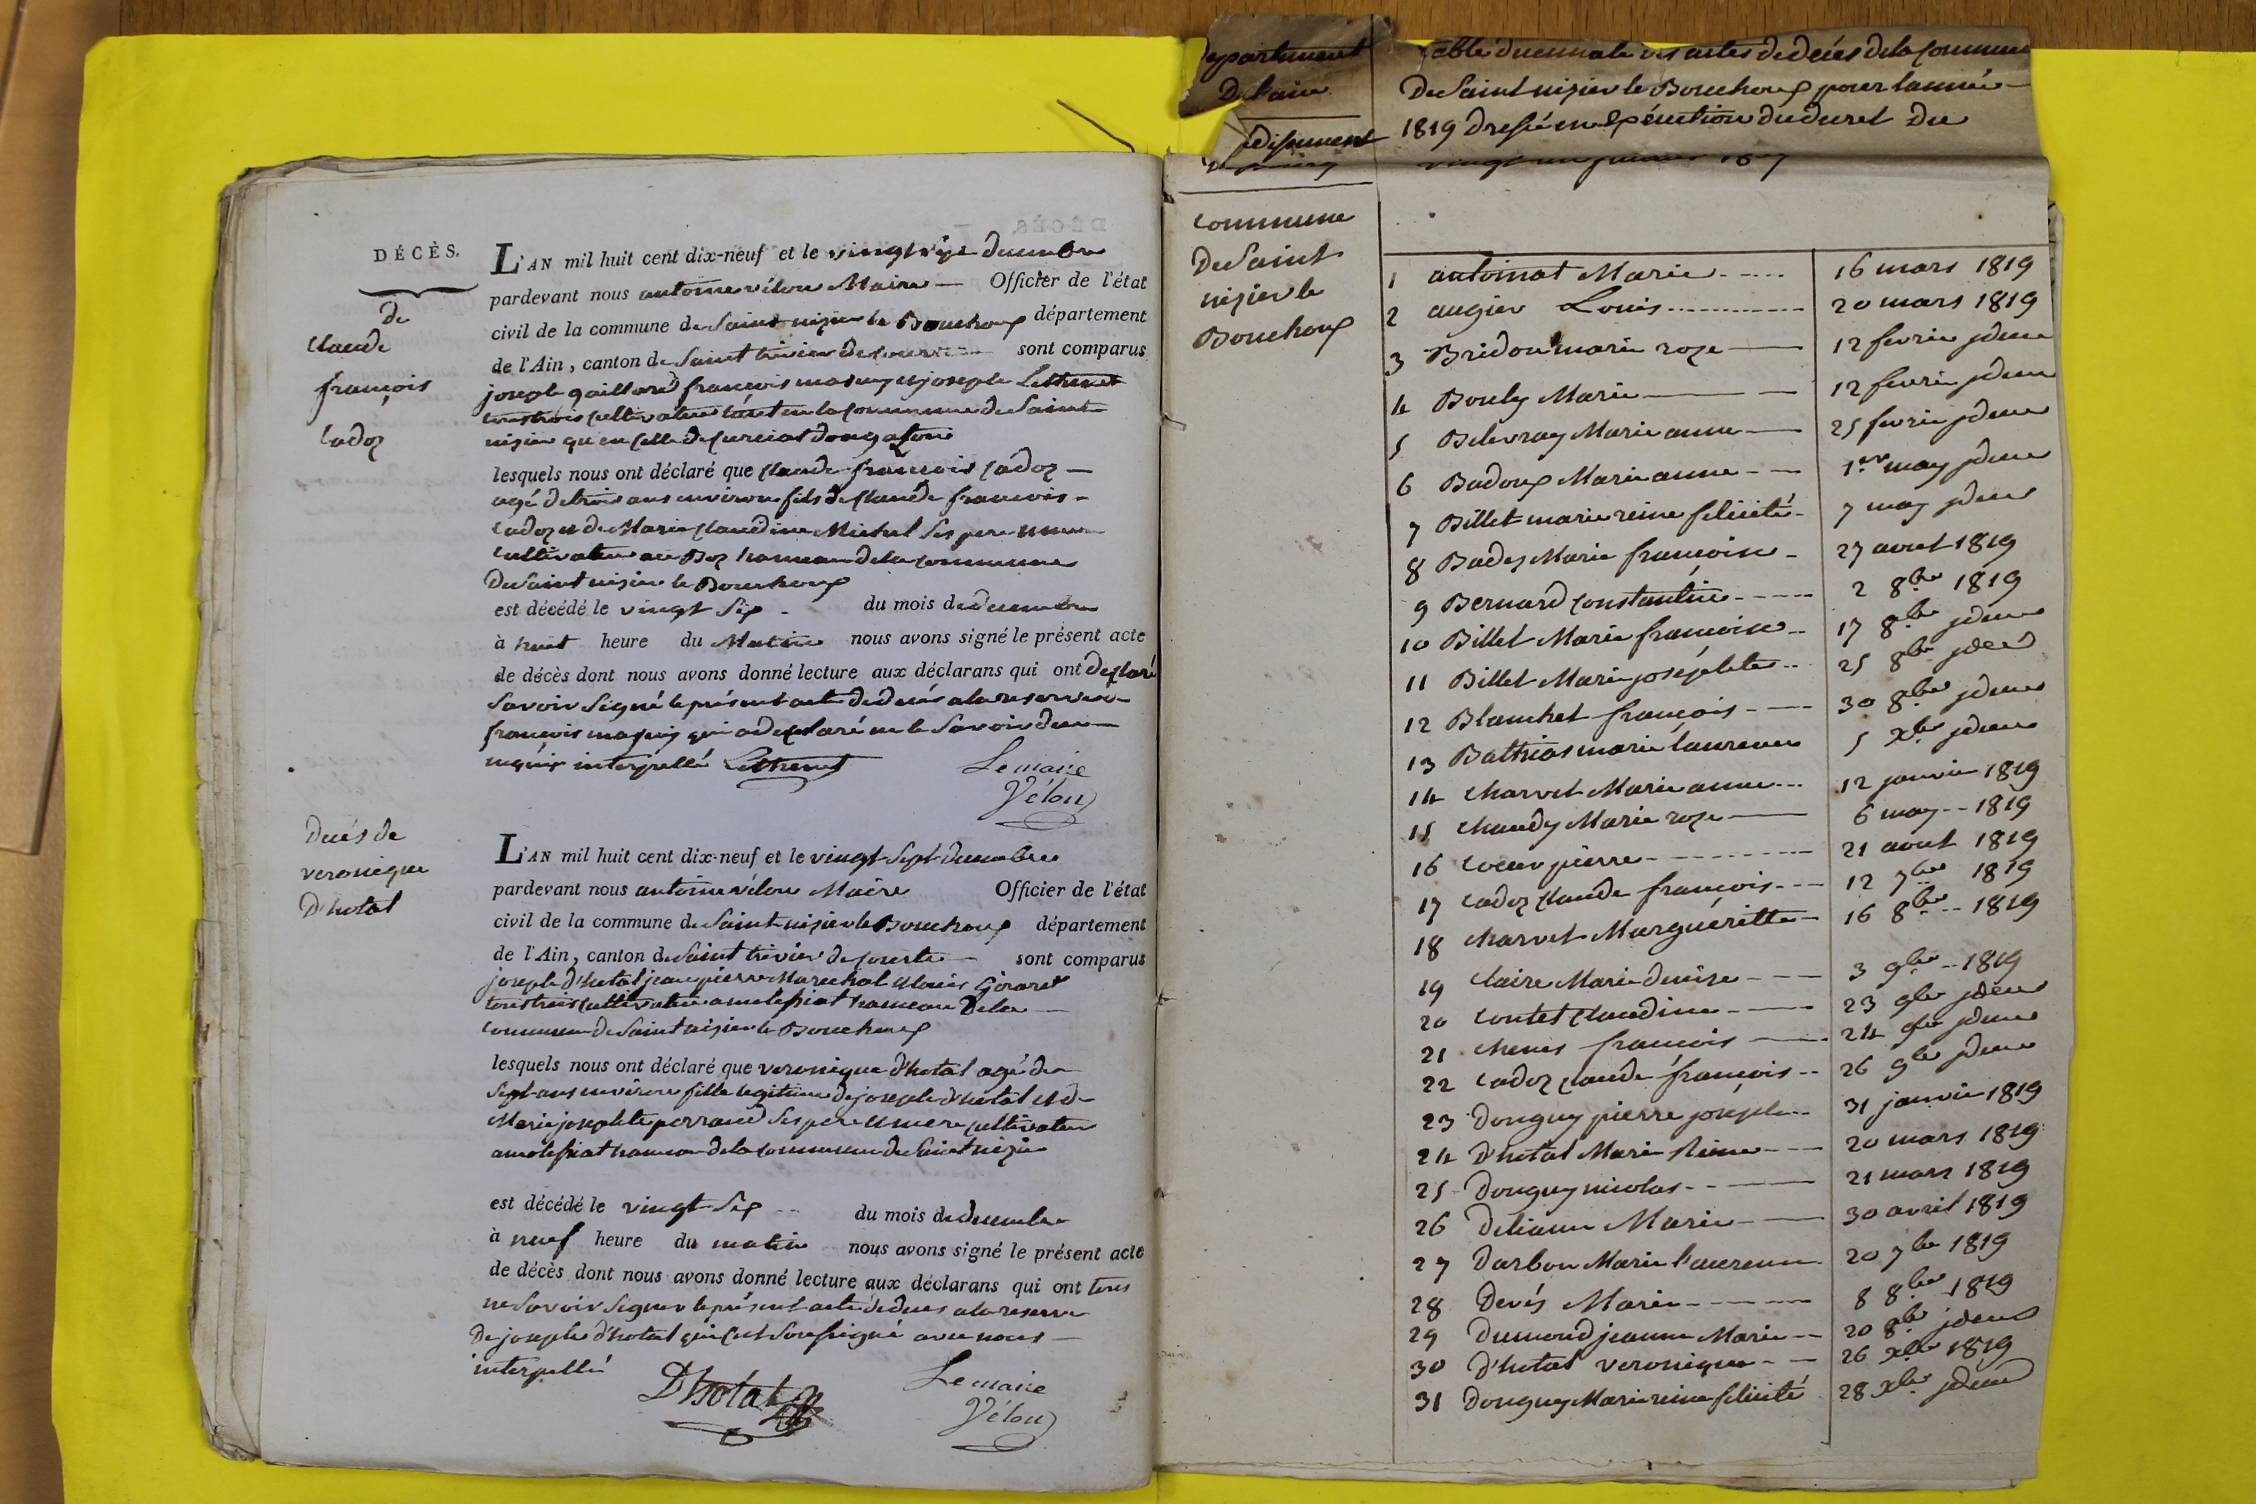 DÉCÈS.
de
Claude
françois
Cadoz
L'AN mil huit cent dix-neuf et le vingt six decembre
pardevant nous antoine vélon Maire Officier de l'état
civil de la commune de Saint nizier le Bouchoux département
de l'Ain, canton de Saint trivier de courtes sont comparus
joseph gaillard françois mas uy et joseph Lethenet
tous trois cultivateurs tant en la commune de Saint
nizier qu'en celle de Curciat dongalon
lesquels nous ont déclaré que Claude françois Cadoz
agé de trois ans environ fils de Claude françois
Cadoz et de Marie Claudine Michel ses pere et mere
cultivateur au Boz hameau de la commune
De Saint nizier le Bouchoux
est décédé le vingt Six du mois de decembre
à huit heure du Matin nous avons signé le présent acte
de décès dont nous avons donné lecture aux déclarans qui ont declaré
savoir signé le présent acte de decés a la reserve de
françois mas uy qui a declaré ne le Savoir de ce
enquis interpellé Lethenet
Le maire
Vélon
Decés de
veronique
D'hotal
L'AN mil huit cent dix-neuf et le vingt Sept decembre
pardevant nous antoine vélon Maire Officier de l'état
civil de la commune de Saint nizier le Bouchoux département
de l'Ain, canton de Saint trivier de courtes sont comparus
joseph d'hotal jean pierre Marechal Girard
tous trois cultivateur a molefsiat hameau De la
commune de Saint nizier le Bouchoux
lesquels nous ont déclaré que veronique d'hotal agé de
Sept ans environ fille legitime de joseph d'hotal et de
Marie josephte perraud ses pere et mere cultivateur
a molefsiat hameau de la commune de Saint nizier
est décédé le vingt Six du mois de decembre
à neuf heure du matin nous avons signé le présent acte
de décès dont nous avons donné lecture aux déclarans qui ont tous
ne Savoir Signer le présent acte de deces a la reserve
De joseph d'hotal qui s'est soussigné avec nous
interpellé
D'hotal
Le maire
Vélon
département
De l'ain
commune
De Saint
nizier le
Bouchoux
table duennale des actes de decés de la commune
De Saint nizier le Bouchoux pour l'année
1819 dressé en expécution du decret du
vingt un
1 antoinat Marie 16 mars 1819
2 augier Louis 20 mars 1819
3 Bridon marie roze 12 fevrier jdem
4 Bouly Marie 12 fevrier jdem
5 Belevray Marie anne 25 fevrier jdem
6 Badoux Marie anne 1er may jdem
7 Billet marie reine felicité 7 may jdem
8 Badez Marie françoise 27 aout 1819
9 Bernard constantine 2 8bre 1819
10 Billet Marie françoise 17 8bre jdem
11 Billet Marie josephte 25 8bre jdem
12 Blanchet françois 30 8bre jdem
13 Bathias marie laurence 5 Xbre jdem
14 Charvet Marie anne 12 janvier 1819
15 Chaudy Marie roze 6 may 1819
16 Coeur pierre 21 aout 1819
17 Cadoz Claude françois 12 7bre 1819
18 Charvet Marguéritte 16 8bre 1819
19 Claire Marie denise 3 9bre 1819
20 Contet Claudine 23 9bre jdem
21 Chenes françois 24 9bre jdem
22 Cadoz Claude françois 26 9bre jdem
23 Donguy pierre joseph 31 janvier 1819
24 D'hotal Marie Reine 20 mars 1819
25 Donguy nicolas 21 mars 1819
26 Deliaune Marie 30 avril 1819
27 Darbon Marie laurence 20 7bre 1819
28 Devés Marie 8 8bre 1819
29 Dumond jeanne Marie 20 8bre jdem
30 D'hotal veronique 26 Xbre 1819
31 Donguy Marie reine felicité 28 Xbre jdem